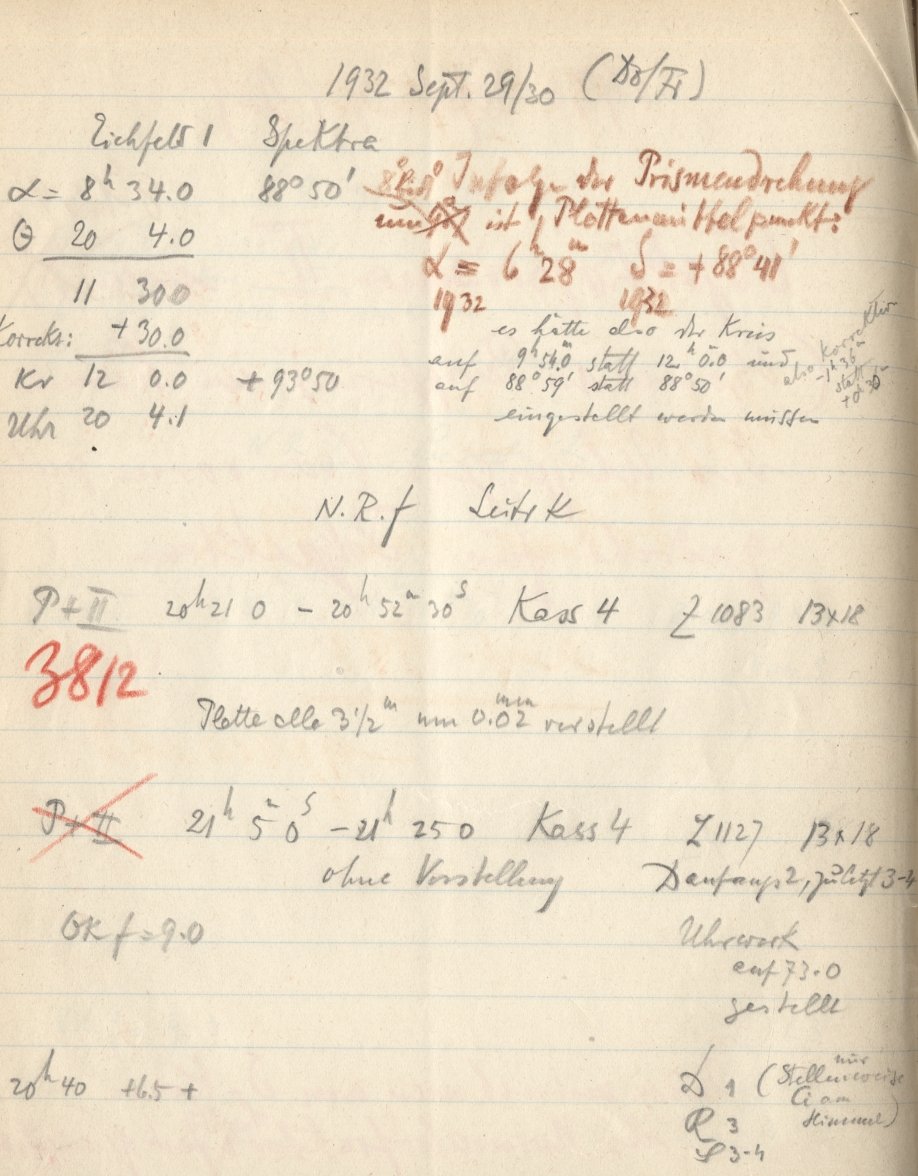 1932 Sept. 29/30 (Do/Fr)
Eichfeld 1 Spektra
α = 8h 34.0 88° 50'
Infolge der Prismendrehung
um ist Plattenmittelpunkt:
θ 20 4.0
α = 6h 28m δ = +88° 41'
1932 1932
11 30.0
Korrekt: +30.0
es hätte also der Kreis
auf 9h 54.0m statt 12h 0.0 und
auf 88° 59' statt 88° 50'
eingestellt werden müssen
also Korrektur
-1h 36m
statt
+0h 30m
Kr 12 0.0 +93° 50
Uhr 20 4.1
N.R.f Leitr K
P + II 20h 21 0 - 20h 52m 30s Kass 4 Z 1083 13x18
3812
Platte alle 3 1/2m um 0.02mm verstellt
P + II 21h 5m 0s - 21h 25 0 Kass 4 Z 1127 13x18
ohne Verstellung D anfangs 2, zuletzt 3-4
OK f = 9.0
Uhrwerk
auf 73.0
gestellt
20h 40 +6.5 +
D 1 (nur
Stellenweise
Ci am
Himmel)
R 3
S 3-4